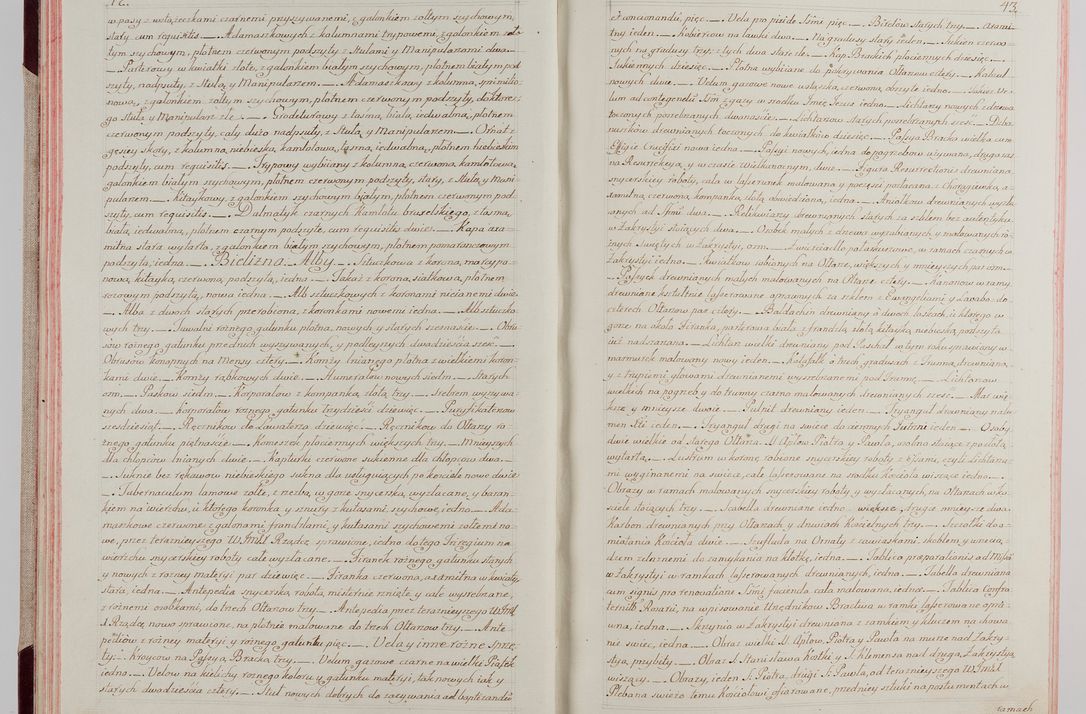 w pasy z wstążeczkami czarnemi przyszywanemi, z galonkiem żołtym szychowym,
stary cum requisitis. Adamaszkowych z kolumnami trypowemi, z galonkiem żoł
tym szychowym, płotnem czerwonym podszyty z Stułami y Manipularzami dwa.
Parterowy w kwiatki złote, z galonkiem białym szychowym, płotnem białym pod
szyty, nadpsuty, z Stułą, y Manipularzem. Adamaszkowy z kolumną
nową, z galonkiem żołtym szychowym, płotnem czerwonym podszyty, do ktore
go Stuła y Manipularz złe. Grodeturowy z lasmą, białą, jedwabną, płotnem
czerwonym podszyty, cały dużo nadpsuty, z Stułą y Manipularzem. Ornat z
gęsiey skory, z kolumną, niebieską, kamlotową, lasmą, jedwabną, płotnem niebieskim
podszyty, cum requisitis. Trypowy wybiiany z kolumną, czerwoną, kamlotową,
galonkiem białym szychowym, płotnem czerwonym podszyty, stary, z Stułą, y Mani
pularzem. Kitaykowy, z galonkiem szychowym białym, płotnem czerwonym pod
szyty, cum requisitis. Dalmatyk czarnych kamlotu bruselskiego, z lasmą,
białą, jedwabną, płotnem czarnym podszyte, cum requisitis dwie. Kapa axa
mitna stara wytarta, z galonkiem białym szychowym, płotnem pomarańczowym
podszyta, iedna. Bielizna. Alby. Sztuczkowa z koroną, marcypa
nową, kitayką, czerwoną, podszyta, iedna. Takaż z koroną, siatkową, płotnem
rozowym podszyta, nowa iedna. Alb sztuczkowych z koronami nicianemi dwie.
Alba z dwoch starych przerobiona, z koronkami nowemi iedna. Alb sztuczko
wych trzy. Tuwalni rożnego gatunku płotna, nowych y starych szesnaście. Obru
sow rożnego gatunku przednich wyszywanych, y podleyszych dwadzieścia sześć.
Obrusow konopnych na Mensy cztery. Komży lnianego płotna z wielkiemi koron
kami dwie. Komży rąbkowych dwie. Humerałow nowych siedm. Starych
osm. Paskow siedm. Korporałow z kompanką, złotą trzy. Srebrem wyszywa
nych dwa. Korporałow rożnego gatunku trzydzieści dziewięć. Puryfikaterzow
sześdziesiąt. Ręcznikow do Lawaterza dziewięć. Ręcznikow do Ołtarzy ro
żnego gatunku piętnaście. Komeszek płociennych większych trzy. Mnieyszych
dla chłopcow lnianych dwie. Kapturki czerwone sukienne dla chłopcow dwa.
Suknie bez rękawow niebieskiego sukna dla usługuiących po kościele nowe dwie
Tabernaculum lamowe żołte, z rzezbą w gorze snycerską, wyzłacane, y baran
kiem na wierzchu, u ktorego koronka, y sznury z kutasami szychowe, iedno. Ada
maszkowe czerwone z galonami frandzlami, y kutasami szychowemi żołtemi no
we, przez teraznieyszego Rządcę sprawione, iedno do tego Inregium na
wierzchu snycerskiey roboty całe wyzłacane. Firanek rożnego gatunku starych
y nowych z rożney materyi par dziewięć. Firanka czerwona, axamitna w kwiaty,
stara iedna. Antepedia snycerską, robotą, misternie rznięte, y całe wysrebrzane,
z rożnemi osobkami, do trzech Ołtarzow trzy. Antepedia przez teraznieyszego
X Rządcę, nowo sprawione, na płotnie malowane do trzech Ołtarzow trzy. Ante
pediow z rożney materyi, y rożnego gatunku pięć. Vela y inne rożne sprzę
ty. Kroycow na Passyą Bracką trzy. Velum gazowe czarne na wielki Piątek
iedno. Velow na kielichy rożnego koloru y gatunku materyi, tak nowych iak y
starych dwadzieścia cztery. Stuł nowych dobrych do zażywania ad baptizandū
43.
et concionandū, pięć. Vela pro pixide Ssmi pięć. Biretow starych trzy.
tny ieden. Kobiercow na ławki dwa. Na gradusy stary ieden. Sukien czerwo
nych na gradusy trzy, z tych dwa stare złe. Kap Brackich płociennych dziesięć.
Sukiennych dziesięć. Płotna wybiiane do pokrywania Ołtarzow cztery. Kotzul
nowych dwie. Velum gazowe nowe wstążką, czerwoną, obszyte iedno. Takież Ve
lum ad contegendū Ssmi z gazy w srodku Imię Jezus iedno. Lichtarzy nowych z drzewa
toczonych, posrebrzanych, dwanaście. Lichtarzow starych posrebrzanych sześć. Dzba
nuszkow drewnianych toczonych do kwiatkow dziesięć. Passya Bracka wielka cum
Effigie Crucifixi nowa iedna. Passyi nowych, iedna do pogrzebow używana, druga zaś
na Resurrekcyą, y w czasie Wielkanocnym, dwie. Figura Resurrectionis drewniana,
snycerskiey roboty, cała w lasserunek malowana y poczęści pozłacana, z chorągiewką, a
xamitną czerwoną, kompanką złotą obwiedzioną, iedna. Aniołkow drewnianych wyzła
canych ad Ssmi dwa. Relikwiarzy drewnianych starych za szkłem bez autentyku
w Zakrystyi stoiących dwa. Osobek małych z drzewa wyrabianych y malowanych ro
żnych Swiętych w Zakrystyi, osm. Zwierciadło połarkuszowe, w ramach czarnych w
Zakrystyi iedno. Kwiatkow robionych na Ołtarze, większych y mnieyszych par osm.
Passyek drewnianych małych malowanych na Ołtarze cztery. Kanonow w ramy
drewniane kształtnie lasserowane oprawnych za szkłem z Ewangeliami y Lavabo do
czterech Ołtarzow par cztery. Baldachin drewniany o dwoch laskach, u ktorego w
gorze na około firanka, parterowa biała z frandzlą, złotą, kitayką, niebieską, podszyta
iuż nadszarzana. Lichtarz wielki drewniany pod Paschał w tym roku sprawiony w
marmurek malowany nowy ieden. Katafalk o trzech gradusach z Trumną, drewnianą,
y z trupiemi głowami drewnianemi wysrebrzanemi pod Trumnę. Lichtarzow
wielkich na pogrzeb y do trumny czarno malowanych drewnianych sześć. Mar wię
ksze y mnieysze dwoie. Pulpit drewniany ieden. Tryanguł drewniany na lu
men Xti ieden. Tryanguł drugi na swiece do ciemnych Jutrzni ieden. Osoby
dwie wielkie od starego Ołtarza SS. Aplow, Piotra y Pawła, osobno stoiące z pozłotą,
wytartą. Lustrum w koronę, robione snycerskiey roboty z 6ściami, czyli Lichtarza
mi wyginanemi na swiece, całe lasserowane na środku Kościoła wiszące iedno.
Obrazy w ramach malowanych snycerskiey roboty y wyzłacanych, na Ołtarzach w ko
ściele stoiących trzy. Scabella drewniane iedno większe, drugie mnieysze dwa.
Karbon drewnianych przy Ołtarzach, y drzwiach Kościelnych trzy. Szczotki do o
miatania Kościoła dwie. Szuflada na Ornaty z zawiaskami, skoblem, y wrzecią
dzem żelaznem do zamykania na kłotkę, iedna. Tablica praeparationis ad Missā
w Zakrystyi w ramkach lasserowanych drewnianych, iedna. Tabella drewniana
cum signis pro renovatione Ssmi facienda cała malowana, iedna. Tablica Confra
ternitis Rosarii, na wpisowanie Urzędnikow Bractwa w ramki lasserowane opra
wna, iedna. Skrzynia w Zakrystyi drewniana z zamkiem y kluczem na chowa
nie swiec, iedna. Obraz wielki SS. Aplow, Piotra y Pawła na murze nad Zakry
styą, przybity. Obraz S. Stanisława Kostki y S. Klemensa nad drugą, Zakrystyą
wiszący. Obrazy, ieden S. Piotra, drugi S. Pawła, od teraznieyszego
Plebana swieżo temu Kościołowi ofiarowane, przedniey sztuki na postumentach w
ramach